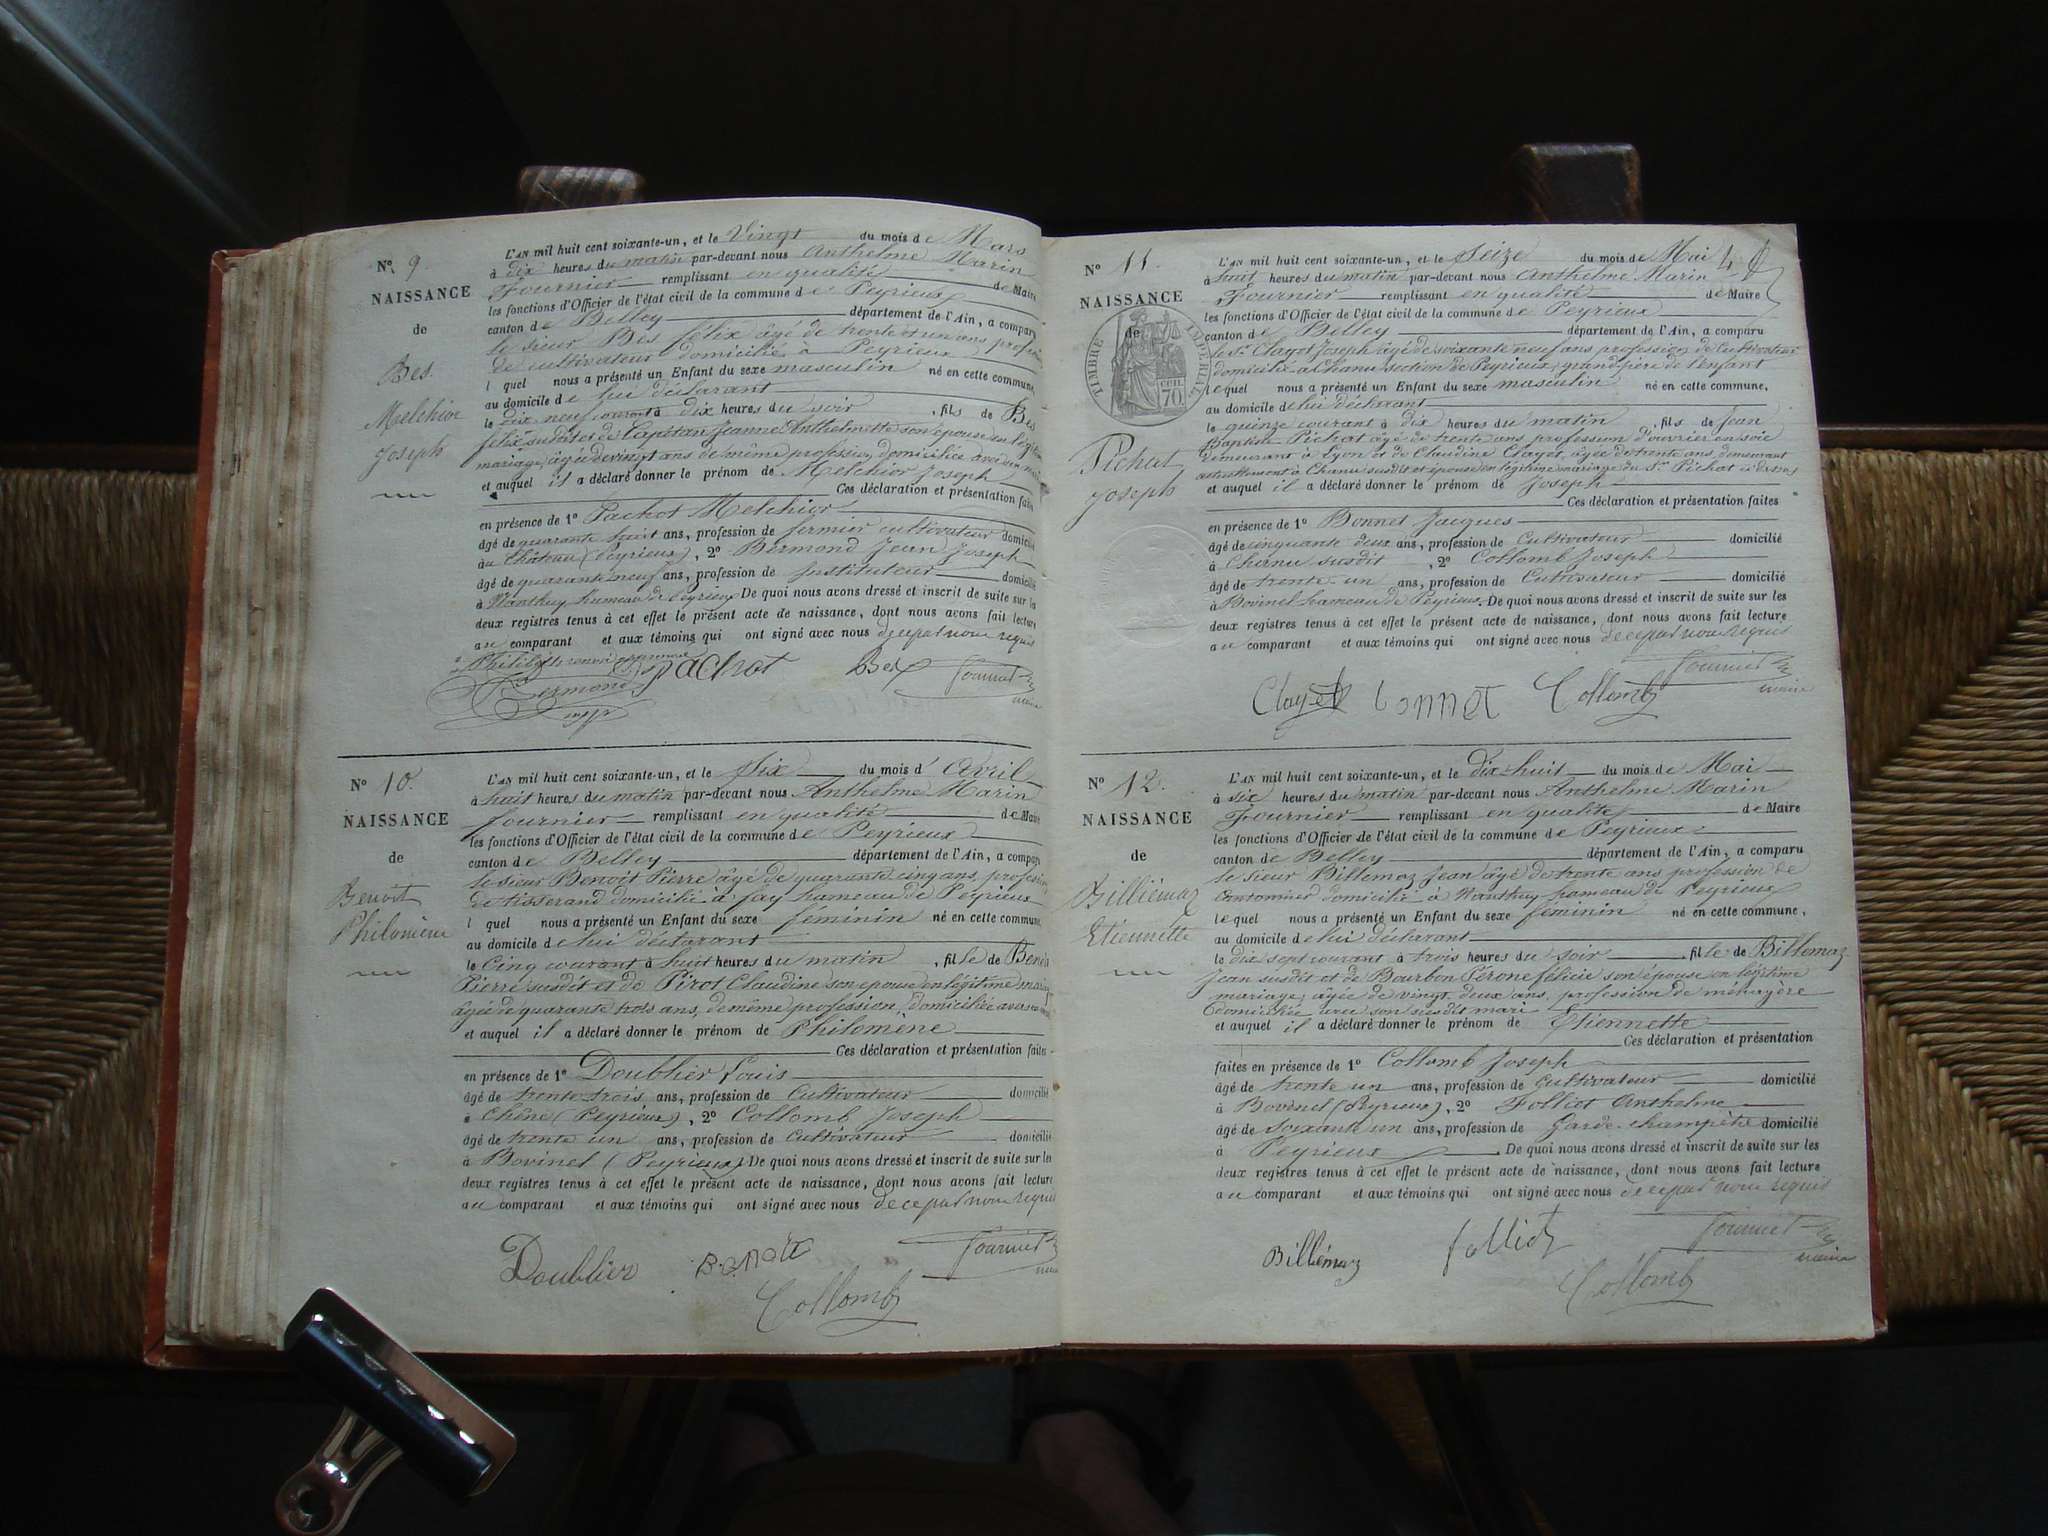 N° 9.
NAISSANCE
de
Bes.
Melchior
Joseph
L'AN mil huit cent soixante-un, et le Vingt du mois de Mars
à dix heures du matin par-devant nous Anthelme Marin
Fournier remplissant en qualité de Maire
les fonctions d'Officier de l'état civil de la commune de Peyrieux
canton de Belley département de l'Ain, a comparu
le sieur Bes félix âgé de trente et un ans profession
de cultivateur domicilié à Peyrieux
l quel nous a présenté un Enfant du sexe masculin né en cette commune,
au domicile de lui déclarant
le dix neuf courant à dix heures du soir, fils de Bes
félix susdit et de Capitan Jeanne Anthelmette son épouse en légitime
mariage, âgée de vingt ans de même profession, domiciliée avec son mari
et auquel il a déclaré donner le prénom de Melchior Joseph
Ces déclaration et présentation faites
en présence de 1° Pachot Melchior
âgé de quarante huit ans, profession de fermier cultivateur domicilié
au Château (Peyrieux), 2° Bermond Jean Joseph
âgé de quarante neuf ans, profession de Instituteur domicilié
à Nanthuy hameau de Peyrieux De quoi nous avons dressé et inscrit de suite sur les
deux registres tenus à cet effet le présent acte de naissance, dont nous avons fait lecture
au comparant et aux témoins qui ont signé avec nous de ce par nous requis
Bermond Pachot Bes Fournier
maire
N° 10.
NAISSANCE
de
Benoit
Philomène
L'AN mil huit cent soixante-un, et le Six du mois d' Avril
à huit heures du matin par-devant nous Anthelme Marin
Fournier remplissant en qualité de Maire
les fonctions d'Officier de l'état civil de la commune de Peyrieux
canton de Belley département de l'Ain, a comparu
le sieur Benoit Pierre âgé de quarante cinq ans, profession
de tisserand domicilié à Fay hameau de Peyrieux
l quel nous a présenté un Enfant du sexe féminin né en cette commune,
au domicile de lui déclarant
le Cinq courant à huit heures du matin, fille de Benoit
Pierre susdit et de Pirot Claudine son épouse en légitime mariage
âgée de quarante trois ans, de même profession, domiciliée avec son mari
et auquel il a déclaré donner le prénom de Philomène
Ces déclaration et présentation faites
en présence de 1° Doublier Louis
âgé de trente trois ans, profession de Cultivateur domicilié
à Chêne (Peyrieux), 2° Collomb Joseph
âgé de trente un ans, profession de Cultivateur domicilié
à Bovinel (Peyrieux) De quoi nous avons dressé et inscrit de suite sur les
deux registres tenus à cet effet le présent acte de naissance, dont nous avons fait lecture
au comparant et aux témoins qui ont signé avec nous de ce par nous requis
Doublier Benoit Fournier
maire
Collomb
N° 11.
NAISSANCE
de
TIMBRE IMPÉRIAL
70
Pichat
Joseph
L'AN mil huit cent soixante-un, et le Seize du mois de Mai
à huit heures du matin par-devant nous Anthelme Marin
Fournier remplissant en qualité de Maire
les fonctions d'Officier de l'état civil de la commune de Peyrieux
canton de Belley département de l'Ain, a comparu
le Sr. Clayet Joseph âgé de soixante neuf ans profession de Cultivateur
domicilié à Chanu section de Peyrieux, grand père de l'enfant
lequel nous a présenté un Enfant du sexe masculin né en cette commune,
au domicile de lui déclarant
le quinze courant à dix heures du matin, fils de Jean
Baptiste Pichat âgé de trente ans profession d'ouvrier en soie
demeurant à Lyon et de Claudine Clayet, âgée de trente ans demeurant
actuellement à Chanu susdit et épouse en légitime mariage du Sr. Pichat ci dessus
et auquel il a déclaré donner le prénom de Joseph
Ces déclaration et présentation faites
en présence de 1° Bonnet Jacques
âgé de cinquante deux ans, profession de Cultivateur domicilié
à Chanu susdit, 2° Collomb Joseph
âgé de trente-un ans, profession de Cultivateur domicilié
à Bovinel hameau de Peyrieux. De quoi nous avons dressé et inscrit de suite sur les
deux registres tenus à cet effet le présent acte de naissance, dont nous avons fait lecture
au comparant et aux témoins qui ont signé avec nous de ce par nous requis
Clayet bonnet Collomb Fournier
maire
N° 12.
NAISSANCE
de
Billiémaz
Etiennette
L'AN mil huit cent soixante-un, et le dix-huit du mois de Mai
à six heures du matin par-devant nous Anthelme Marin
Fournier remplissant en qualité de Maire
les fonctions d'Officier de l'état civil de la commune de Peyrieux
canton de Belley département de l'Ain, a comparu
le sieur Billemaz Jean âgé de trente ans profession de
Cantonnier domicilié à Nanthuy hameau de Peyrieux
lequel nous a présenté un Enfant du sexe féminin né en cette commune,
au domicile de lui déclarant
le dix sept courant à trois heures du soir, fille de Billemaz
Jean susdit et de Bourbon Pérone félicie son épouse en légitime
mariage, âgée de vingt deux ans, profession de ménagère
domiciliée avec son susdit mari
et auquel il a déclaré donner le prénom de Etiennette
Ces déclaration et présentation
faites en présence de 1° Collomb Joseph
âgé de trente un ans, profession de Cultivateur domicilié
à Bovinel (Peyrieux), 2° Folliet Anthelme
âgé de soixante un ans, profession de Garde-champêtre domicilié
à Peyrieux De quoi nous avons dressé et inscrit de suite sur les
deux registres tenus à cet effet le présent acte de naissance, dont nous avons fait lecture
au comparant et aux témoins qui ont signé avec nous de ce par nous requis
Billémaz folliet Fournier
maire
Collomb